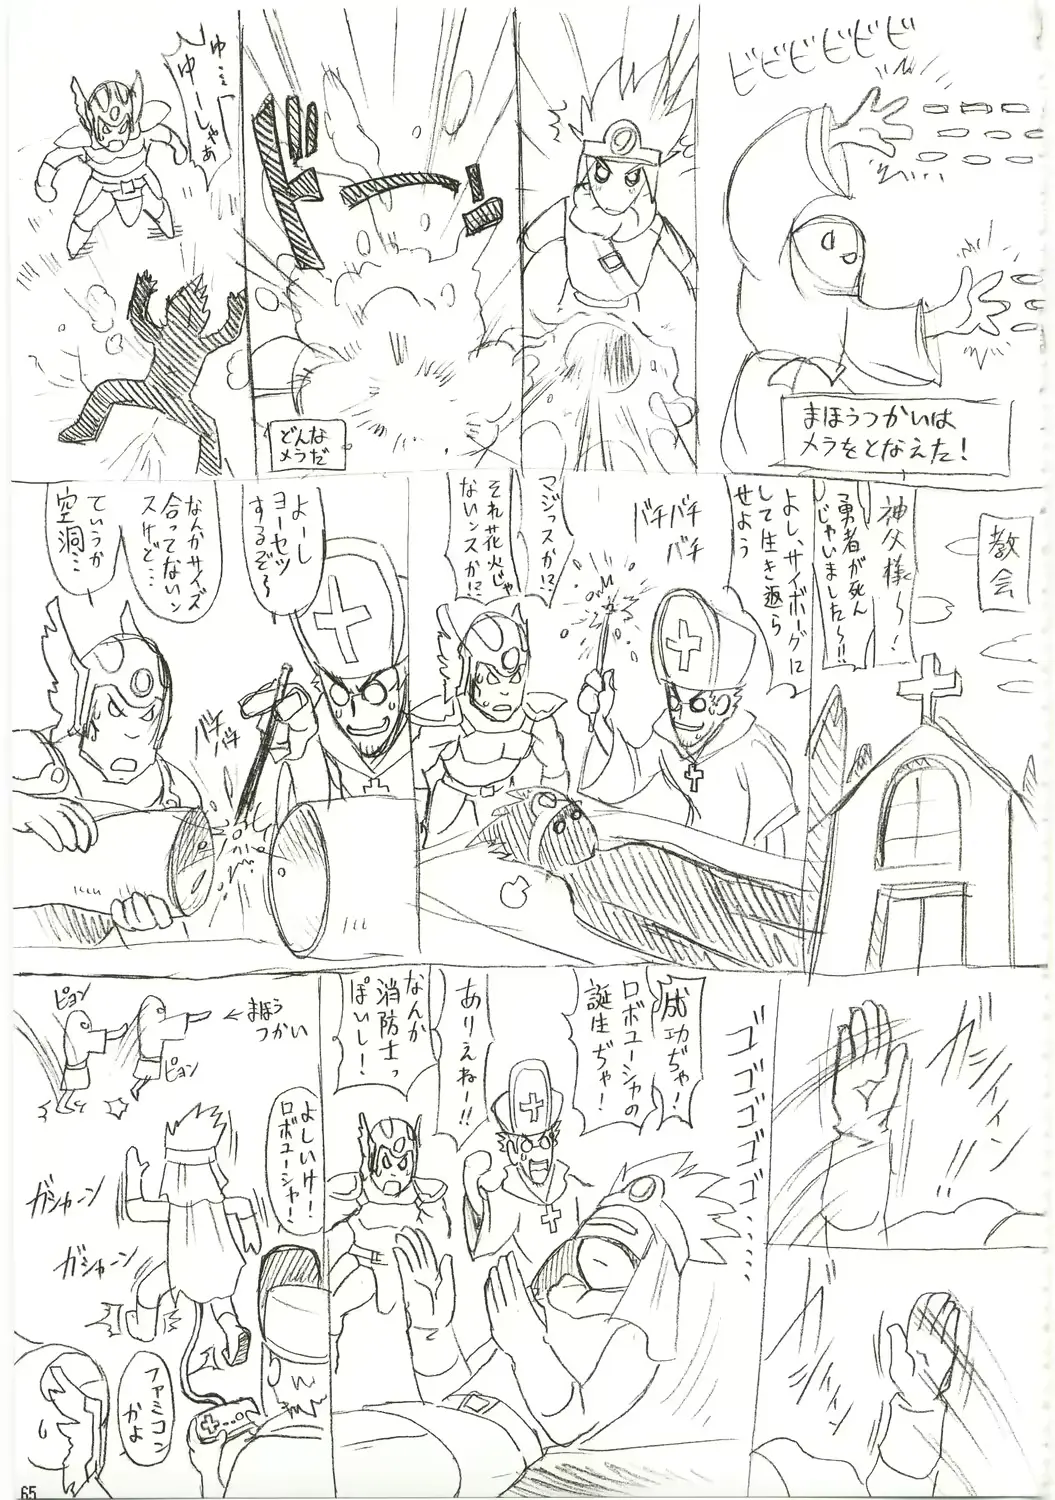 ビビビビビビ
まほうつかいは
メラをとなえた!
どんな
メラだ
ゆ…
ゆーしゃぁ
教会
神父様〜!
勇者が死ん
じゃいました〜!!
よし、サイボーグに
して生き返ら
せよう
バチバチ
バチ
マジっスか!?
それ花火じゃ
ないンスか!?
よーし
ヨーセツ
するぞ〜
バチ
バチ
なんかサイズ
合ってないン
スけど…
ていうか
空洞…
ガシィイィン
ゴゴゴゴゴゴ……
成功ぢゃ!
ロボューシャの
誕生ぢゃ!
ありえねー!!
なんか
消防士っ
ぽいし!
ピョン
ピョン
←まほう
つかい
よしいけ!
ロボューシャー!
ガシャーン
ガシャーン
ファミコン
かよ
65